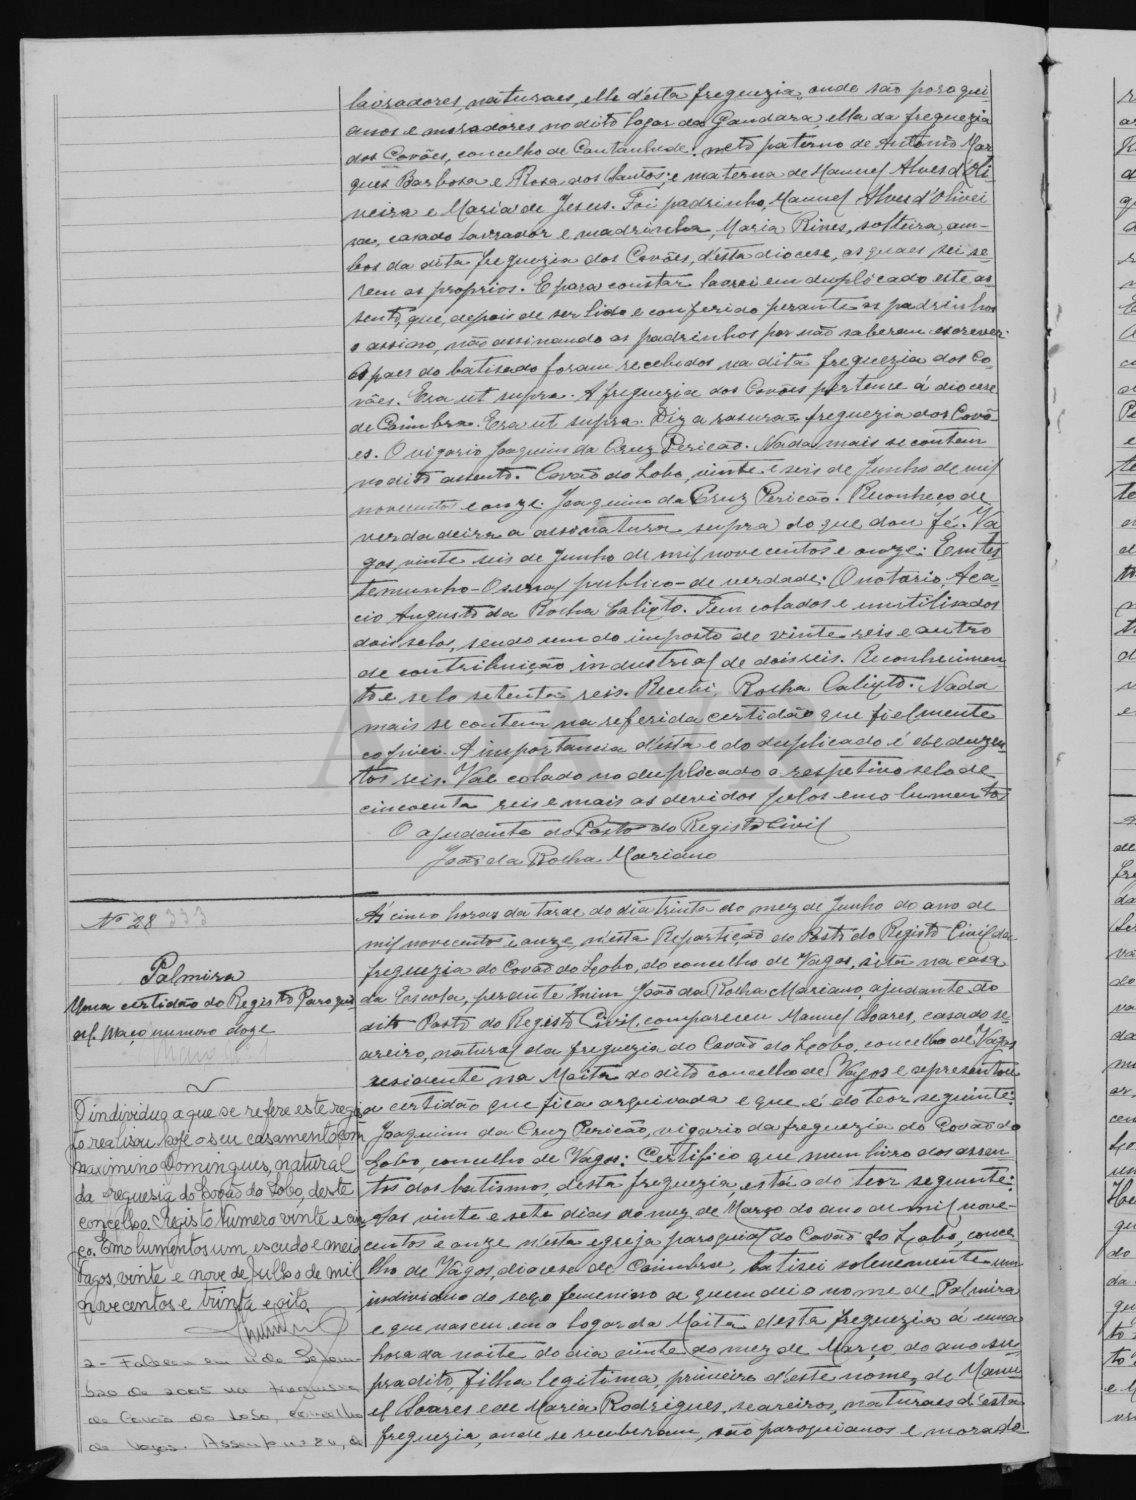 lavradores, naturaes, elle d'esta freguezia, onde são paroqui-
anos e moradores no dito logar da Gandara, ella da freguezia
dos Covões, concelho de Cantanhede; neto paterno de Antonio Mar
ques Barbosa e Rosa dos Santos; e materna de Manuel Alves d'Oli-
veira e Maria de Jesus. Foi padrinho, Manuel Alves d'Olivei
ra, casado lavrador e madrinha, Maria Rines, solteira, am-
bos da dita freguezia dos Covões, d'esta diocese, os quaes sei se-
rem os proprios. E para constar lavrei em duplicado este as-
sento, que, depois de ser lido e conferido perante os padrinhos
o assino, não assinando os padrinhos por não saberem escrever.
Os paes do batisado foram recebidos na dita freguezia dos Co-
vões. Era ut supra. A freguezia dos Covões pertence á diocese
de Coimbra. Era ut supra. Diz a rasura = freguezia dos Covõ-
es. O vigario Joaquim da Cruz Pericão. Nada mais se contem
no dito assento. Covão do Lobo, vinte e seis de Junho de mil
novecentos e onze. Joaquim da Cruz Pericão. Reconheço de
verdadeira a assinatura supra do que dou fé. Va
gos, vinte seis de Junho de mil novecentos e onze: Em tes
temunho - O sinal publico - de verdade; O notario, Aca-
cio Augusto da Rocha Calixto. Tem colados e inutilisados
dois selos, sendo um do imposto de vinte reis e outro
de contribuição industrial de dois reis. Reconhecimen-
to e selo setenta reis. Recebi, Rocha Calixto. Nada
mais se contem na referida certidão que fielmente
copiei. A importancia d'esta e do duplicado é de duzen-
tos reis. Vae colado no duplicado o respetivo selo de
cincoenta reis e mais os devidos pelos emolumentos
O ajudante do Posto do Registo Civil
João da Rocha Mariano
Nº 28 333
Palmira
Uma certidão do Registo Paroqui-
al. Maço numero doze
O individuo a que se refere este regis-
to realisou hoje o seu casamento com
Maximino Domingues, natural
da freguesia do Covão do Lobo, deste
concelho. Registo Numero vinte e cin
co. Emolumentos um escudo e meio
Vagos, vinte e nove de julho de mil
novecentos e trinta e oito
2 - Faleceu em 11 de Setem-
bro de 2005 na freguesia
de Covão do Lobo, concelho
de Vagos. Assento nº 84, de
Ás cinco horas da tarde do dia trinta do mez de Junho do ano de
mil novecentos e onze, n'esta Repartição do Posto do Registo Civil da
freguezia do Covão do Lobo, do concelho de Vagos, sita na casa
da Escola, perante mim João da Rocha Mariano, ajudante do
dito Posto do Registo Civil, compareceu Manuel Soares, casado se-
areiro, natural da freguezia do Covão do Lobo, concelho de Vagos
residente na Moita do dito concelho de Vagos e apresentou
a certidão que fica arquivada e que é do teor seguinte:
Joaquim da Cruz Pericão, vigario da freguezia do Covão do
Lobo, concelho de Vagos: Certifico que num livro dos assen-
tos dos batismos, desta freguezia, está o do teor seguinte:
Aos vinte e sete dias do mez de Março do ano de mil nove-
centos e onze n'esta egreja paroquial do Covão do Lobo, conce
lho de Vagos, diocese de Coimbra, batisei solenemente um
individuo do sexo femenino a quem dei o nome de Palmira
e que nasceu em o logar da Moita desta freguezia á uma
hora da noite do dia vinte do mez de Março, do ano su-
pradito, filha legitima, primeira d'este nome, de Manu-
el Soares e de Maria Rodrigues, seareiros, naturaes d'esta
freguezia, onde se receberam, são paroquianos e morado-